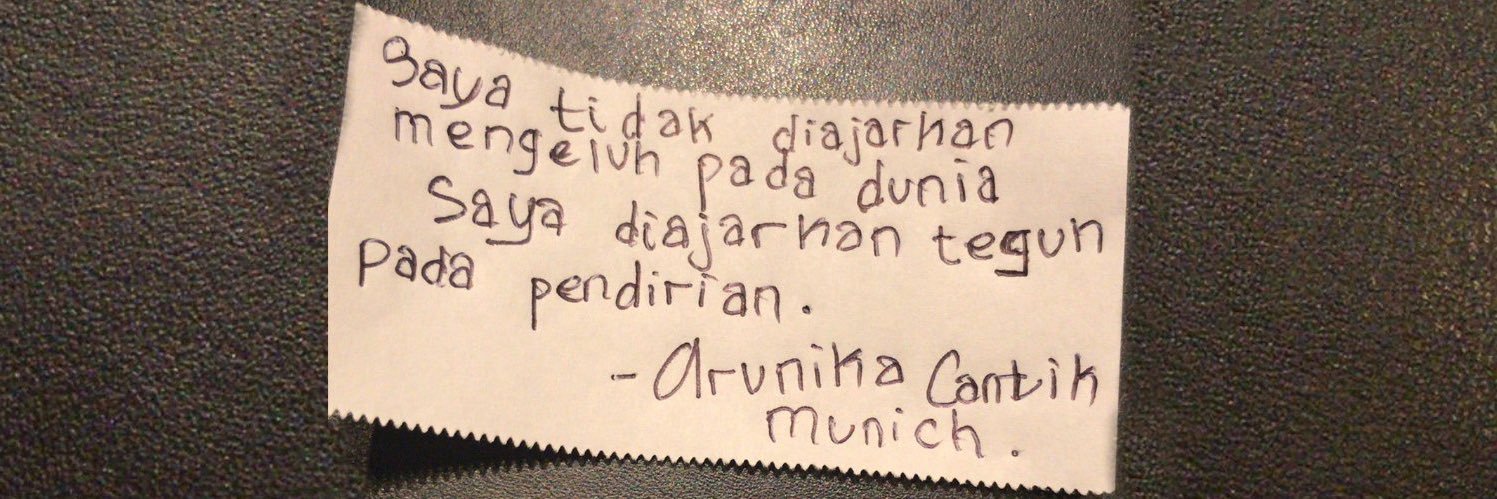 Saya tidak diajarkan
mengeluh pada dunia
Saya diajarkan teguh
pada pendirian.
- Arunika Cantik
Munich.